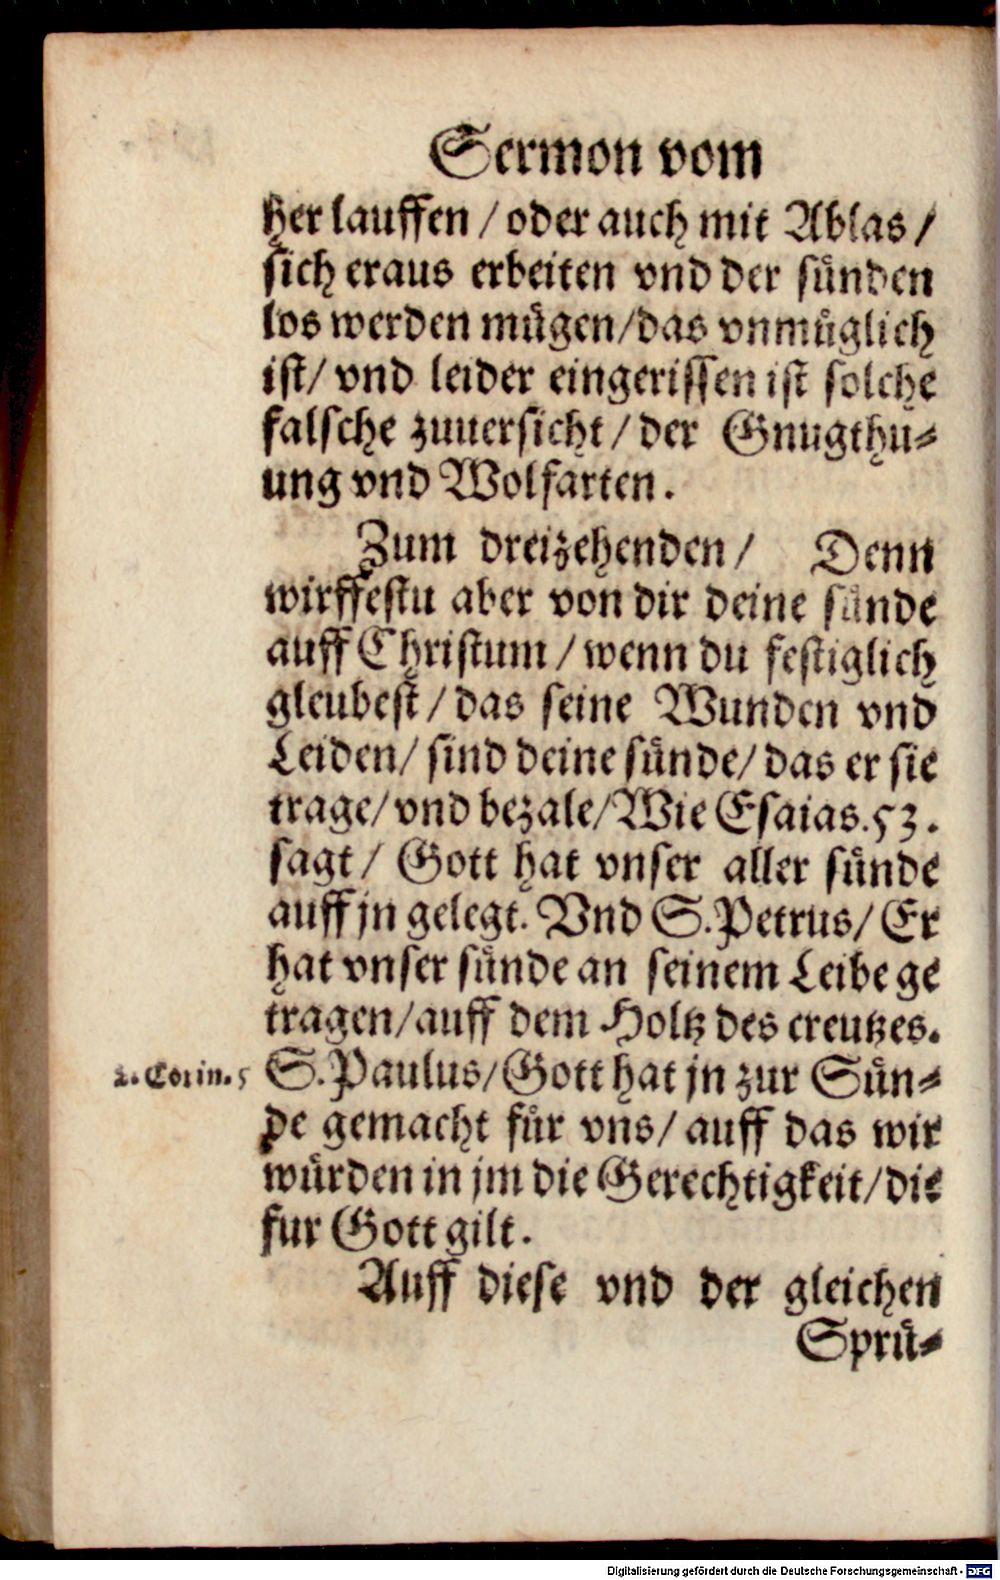 Sermon vom
her lauffen / oder auch mit Ablas /
sich eraus erbeiten vnd der sünden
los werden mügen/das vnmüglich
ist/ vnd leider eingerissen ist solche
falsche zuuersicht / der Gnugthu-
ung vnd Wolfarten.
Zum dreizehenden / Denn
wirffestu aber von dir deine sünde
auff Christum / wenn du festiglich
gleubest / das seine Wunden vnd
Leiden/ sind deine sünde/ das er sie
trage/ vnd bezale/ Wie Esaias.53.
sagt / Gott hat vnser aller sünde
auff jn gelegt. Vnd S.Petrus/ Er
hat vnser sünde an seinem Leibe ge
tragen/auff dem Holtz des creutzes.
2. Corin. 5 S.Paulus/ Gott hat jn zur Sün-
de gemacht für vns/ auff das wir
würden in jm die Gerechtigkeit/die
fur Gott gilt.
Auff diese vnd der gleichen
Sprü-
Digitalisierung gefördert durch die Deutsche Forschungsgemeinschaft - DFG